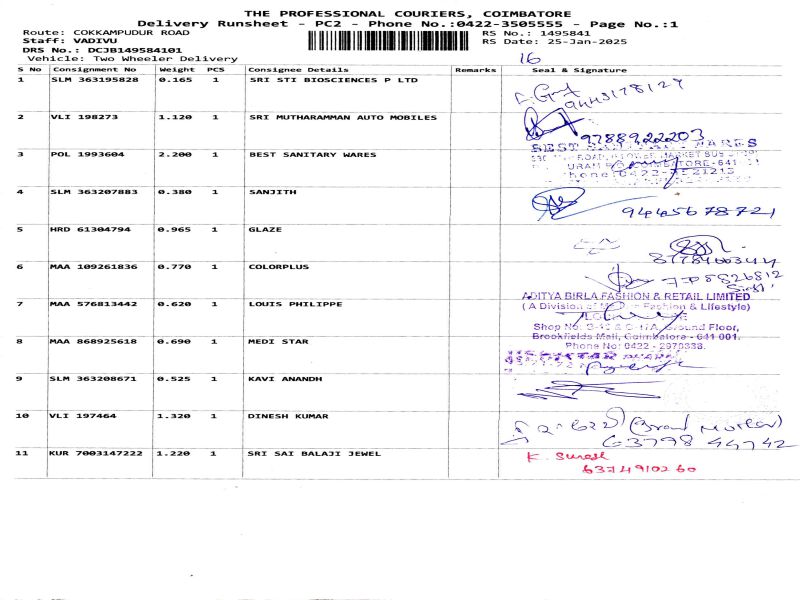 THE PROFESSIONAL COURIERS, COIMBATORE
Delivery Runsheet - PC2 - Phone No.:0422-3505555 - Page No.:1
Route: COKKAMPUDUR ROAD RS No.: 1495841
Staff: VADIVU RS Date: 25-Jan-2025
DRS No.: DCJB149584101
Vehicle: Two Wheeler Delivery 16
S No Consignment No Weight PCS Consignee Details Remarks Seal & Signature
1 SLM 363195828 0.165 1 SRI STI BIOSCIENCES P LTD
2 VLI 198273 1.120 1 SRI MUTHARAMMAN AUTO MOBILES
9788922203
3 POL 1993604 2.200 1 BEST SANITARY WARES
4 SLM 363207883 0.380 1 SANJITH
9445678721
5 HRD 61304794 0.965 1 GLAZE
6 MAA 109261836 0.770 1 COLORPLUS
ADITYA BIRLA FASHION & RETAIL LIMITED
7 MAA 576813442 0.620 1 LOUIS PHILIPPE
(A Division of Fashion & Lifestyle)
Ground Floor,
Brookfields Mall, Coimbatore - 641 001.
8 MAA 868925618 0.690 1 MEDI STAR
9 SLM 363208671 0.525 1 KAVI ANANDH
10 VLI 197464 1.320 1 DINESH KUMAR
63798 44742
11 KUR 7003147222 1.220 1 SRI SAI BALAJI JEWEL K. Suresh
6374910260